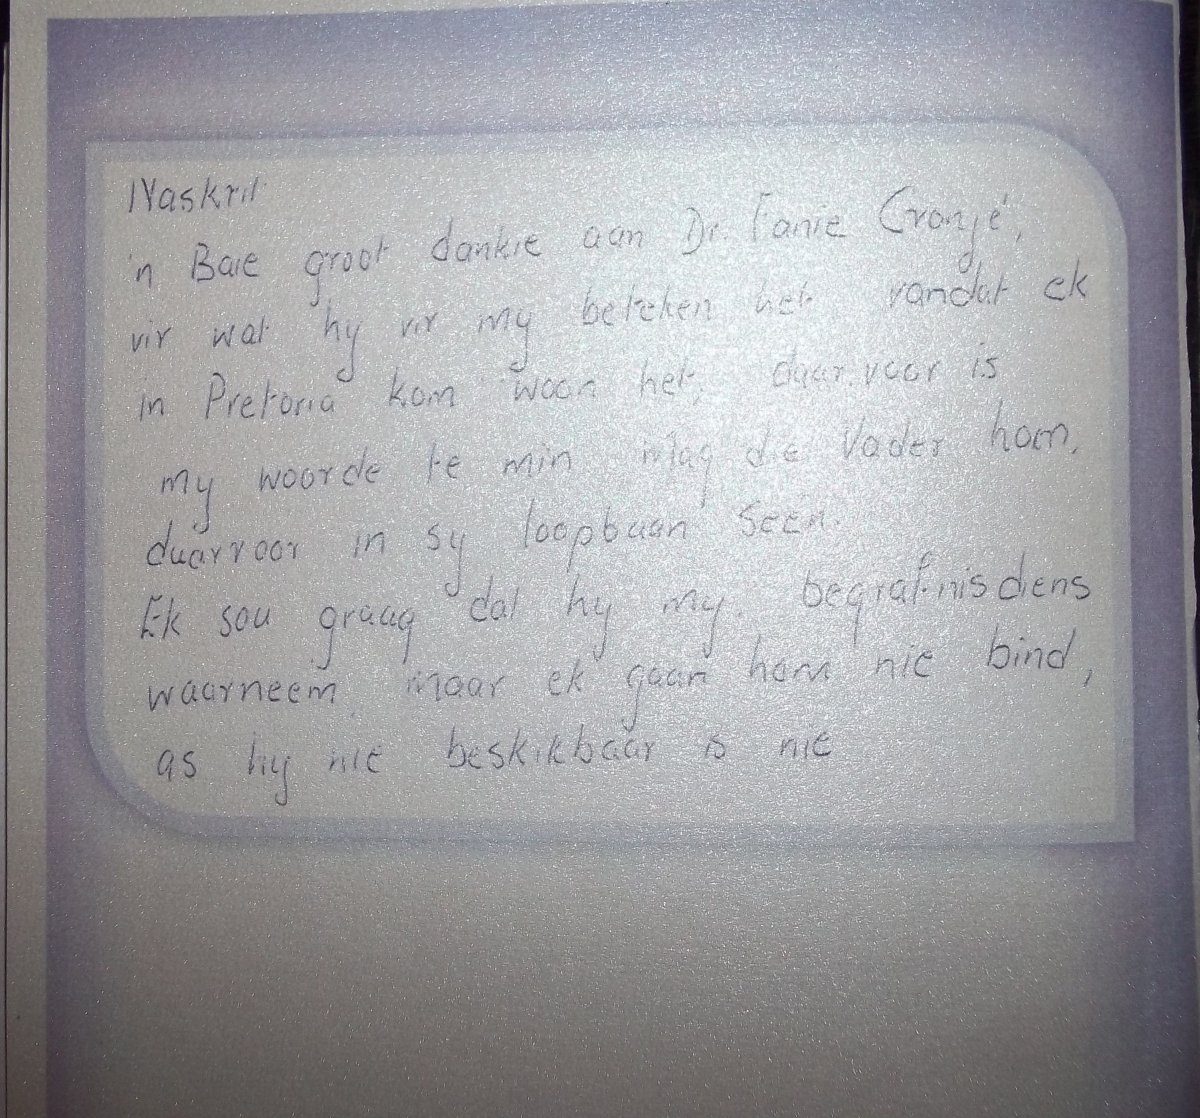 Naskrif
'n Baie groot dankie aan Dr. Fanie Cronjé,
vir wat hy vir my beteken het vandat ek
in Pretoria kom woon het, daarvoor is
my woorde te min Mag die Vader hom,
daarvoor in sy loopbaan seën.
Ek sou graag dat hy my begrafnisdiens
waarneem, maar ek gaan hom nie bind,
as hy nie beskikbaar is nie